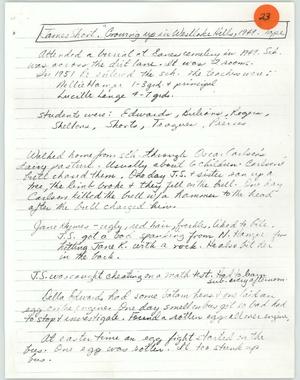 23
James Short. "Growing up in Westlake Hills, 1949. tape
Attended a burial at Eanes cemetery in 1949. Sch.
was across the dirt lane. It was 2 rooms.
In 1951 he entered the sch. The teachers were:
Nellie Hamar 1-3 grd + principal
Lucille Lange 4-7 grds.
Students were: Edwards, Bulians, Rogers,
Skeltons, Shorts, Teagues, Pierces
Walked home from sch. through Oscar Carlson's
dairy pasture. Usually about 6 children. Carlson's
bull chased them. One day J.S. + sister ran up a
tree, the limb broke + they fell on the bull. One day
Carlson killed the bull w/ a hammer to the head
after the bull charged him.
Jane - ugly, red hair, freckles, liked to bite.
J.S. got a bad spanking from N. for
hitting Jane K. with a rock. He also bit her
in the back.
J.S. was caught cheating on a math test. Had to learn
sub. every afternoon.
Della Edwards had some bantam hens + one laid an
egg in the engine. One day smell on bus got so bad had
to stop + investigate. Found a rotten egg all over engine.
At easter time an egg fight started on the
bus. One egg was rotten. It too stunk up
bus.